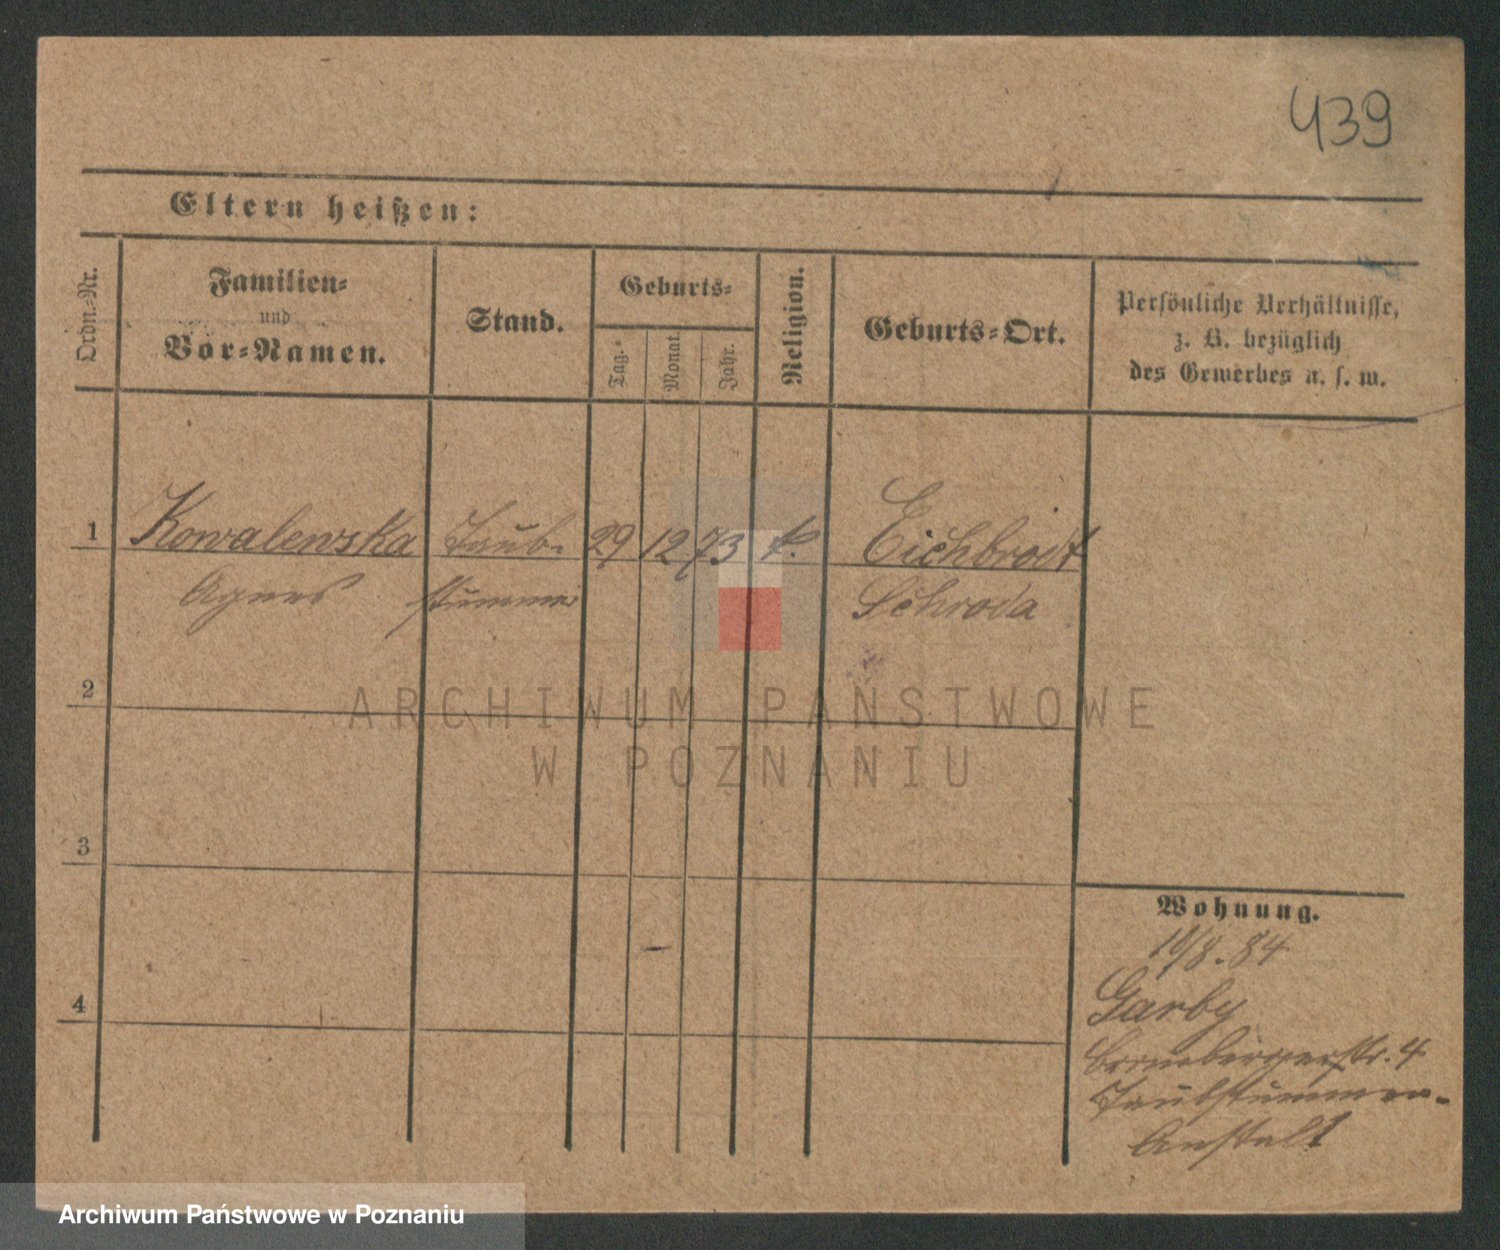 439
Eltern heißen:
Ordn.-Nr.
Familien-
und
Vor-Namen.
Stand.
Geburts-
Tag.
Monat
Jahr.
Religion.
Geburts-Ort.
Persönliche Verhältnisse,
z. B. bezüglich
des Gewerbes u. s. w.
1 Kowalewska Taub- 29 12 73 k. Eichbrodt
Agnes stumme Schroda
2
ARCHIWUM PAŃSTWOWE
W POZNANIU
3
Wohnung.
19/8. 84
4
Garby
Brombergerstr. 4
Taubstummen-
Anstalt
Archiwum Państwowe w Poznaniu